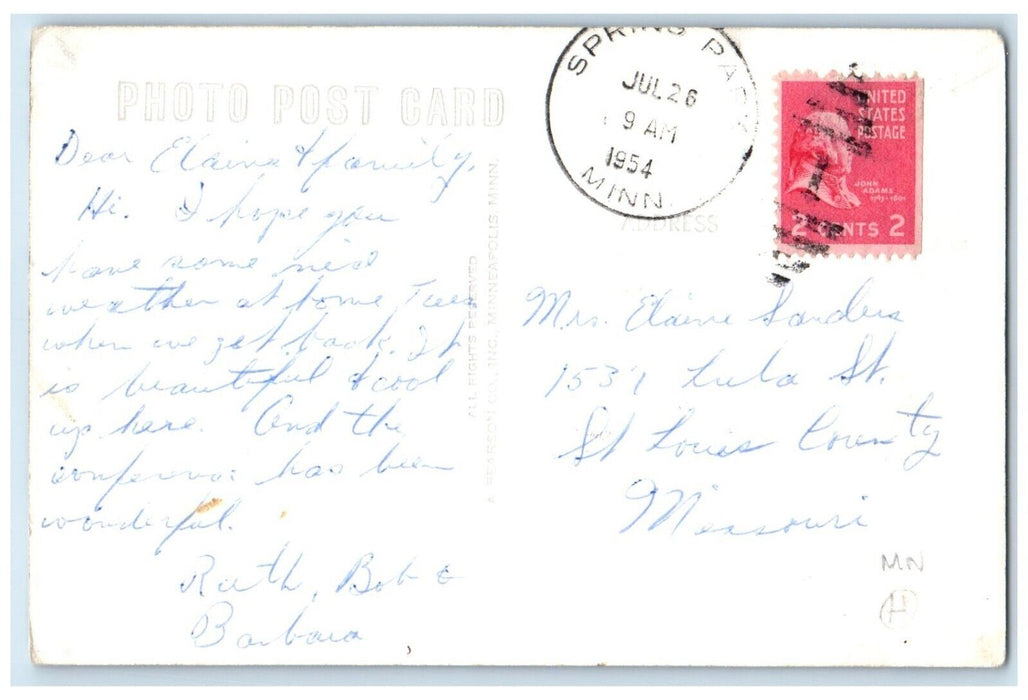 PHOTO POST CARD
Dear Elaine & family,
Hi. I hope you
have some nice
weather at home Tues
when we get back. It
is beautiful & cool
up here. And the
has been
wonderful.
Ruth, Bob &
Barbara
ALL RIGHTS RESERVED
A PEARSON CO., INC. MINNEAPOLIS, MINN.
SPRING PARK
JUL 26
9 AM
1954
MINN.
UNITED
STATES
POSTAGE
JOHN
ADAMS
1797-1801
2 CENTS 2
ADDRESS
Mrs. Elaine Sanders
1537 Lula St.
St Louis County
Missouri
MN
H